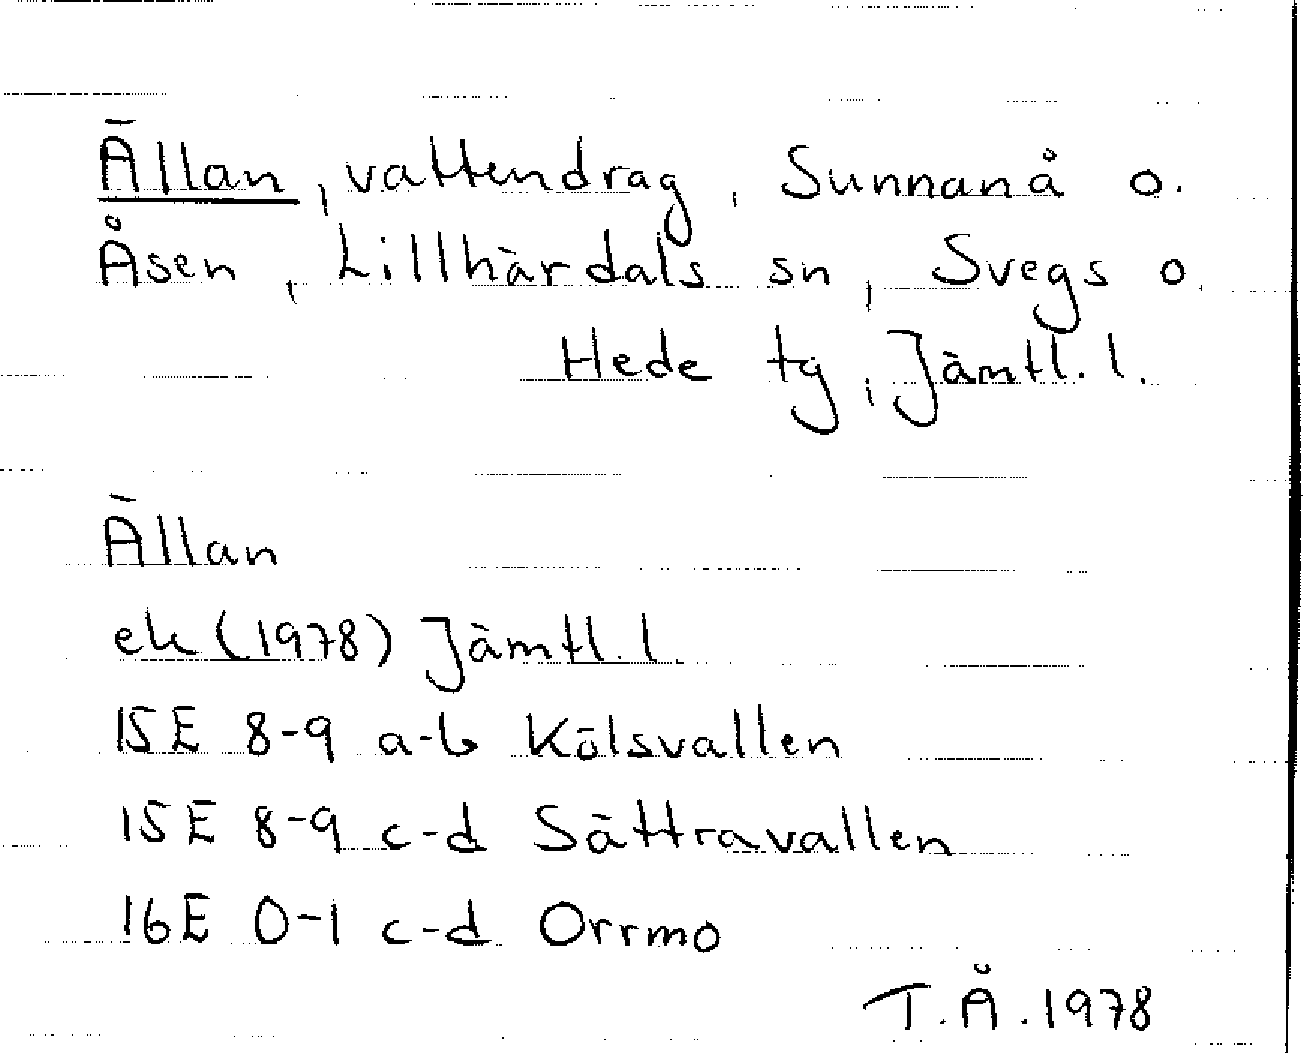 Ällan, vattendrag, Sunnanå o.
Åsen, Lillhärdals sn, Svegs o.
Hede tg, Jämtl. l.
Ällan
ek (1978) Jämtl. l.
15E 8-9 a-b Kölsvallen
15E 8-9 c-d Sättravallen
16E 0-1 c-d Orrmo
T.Å. 1978